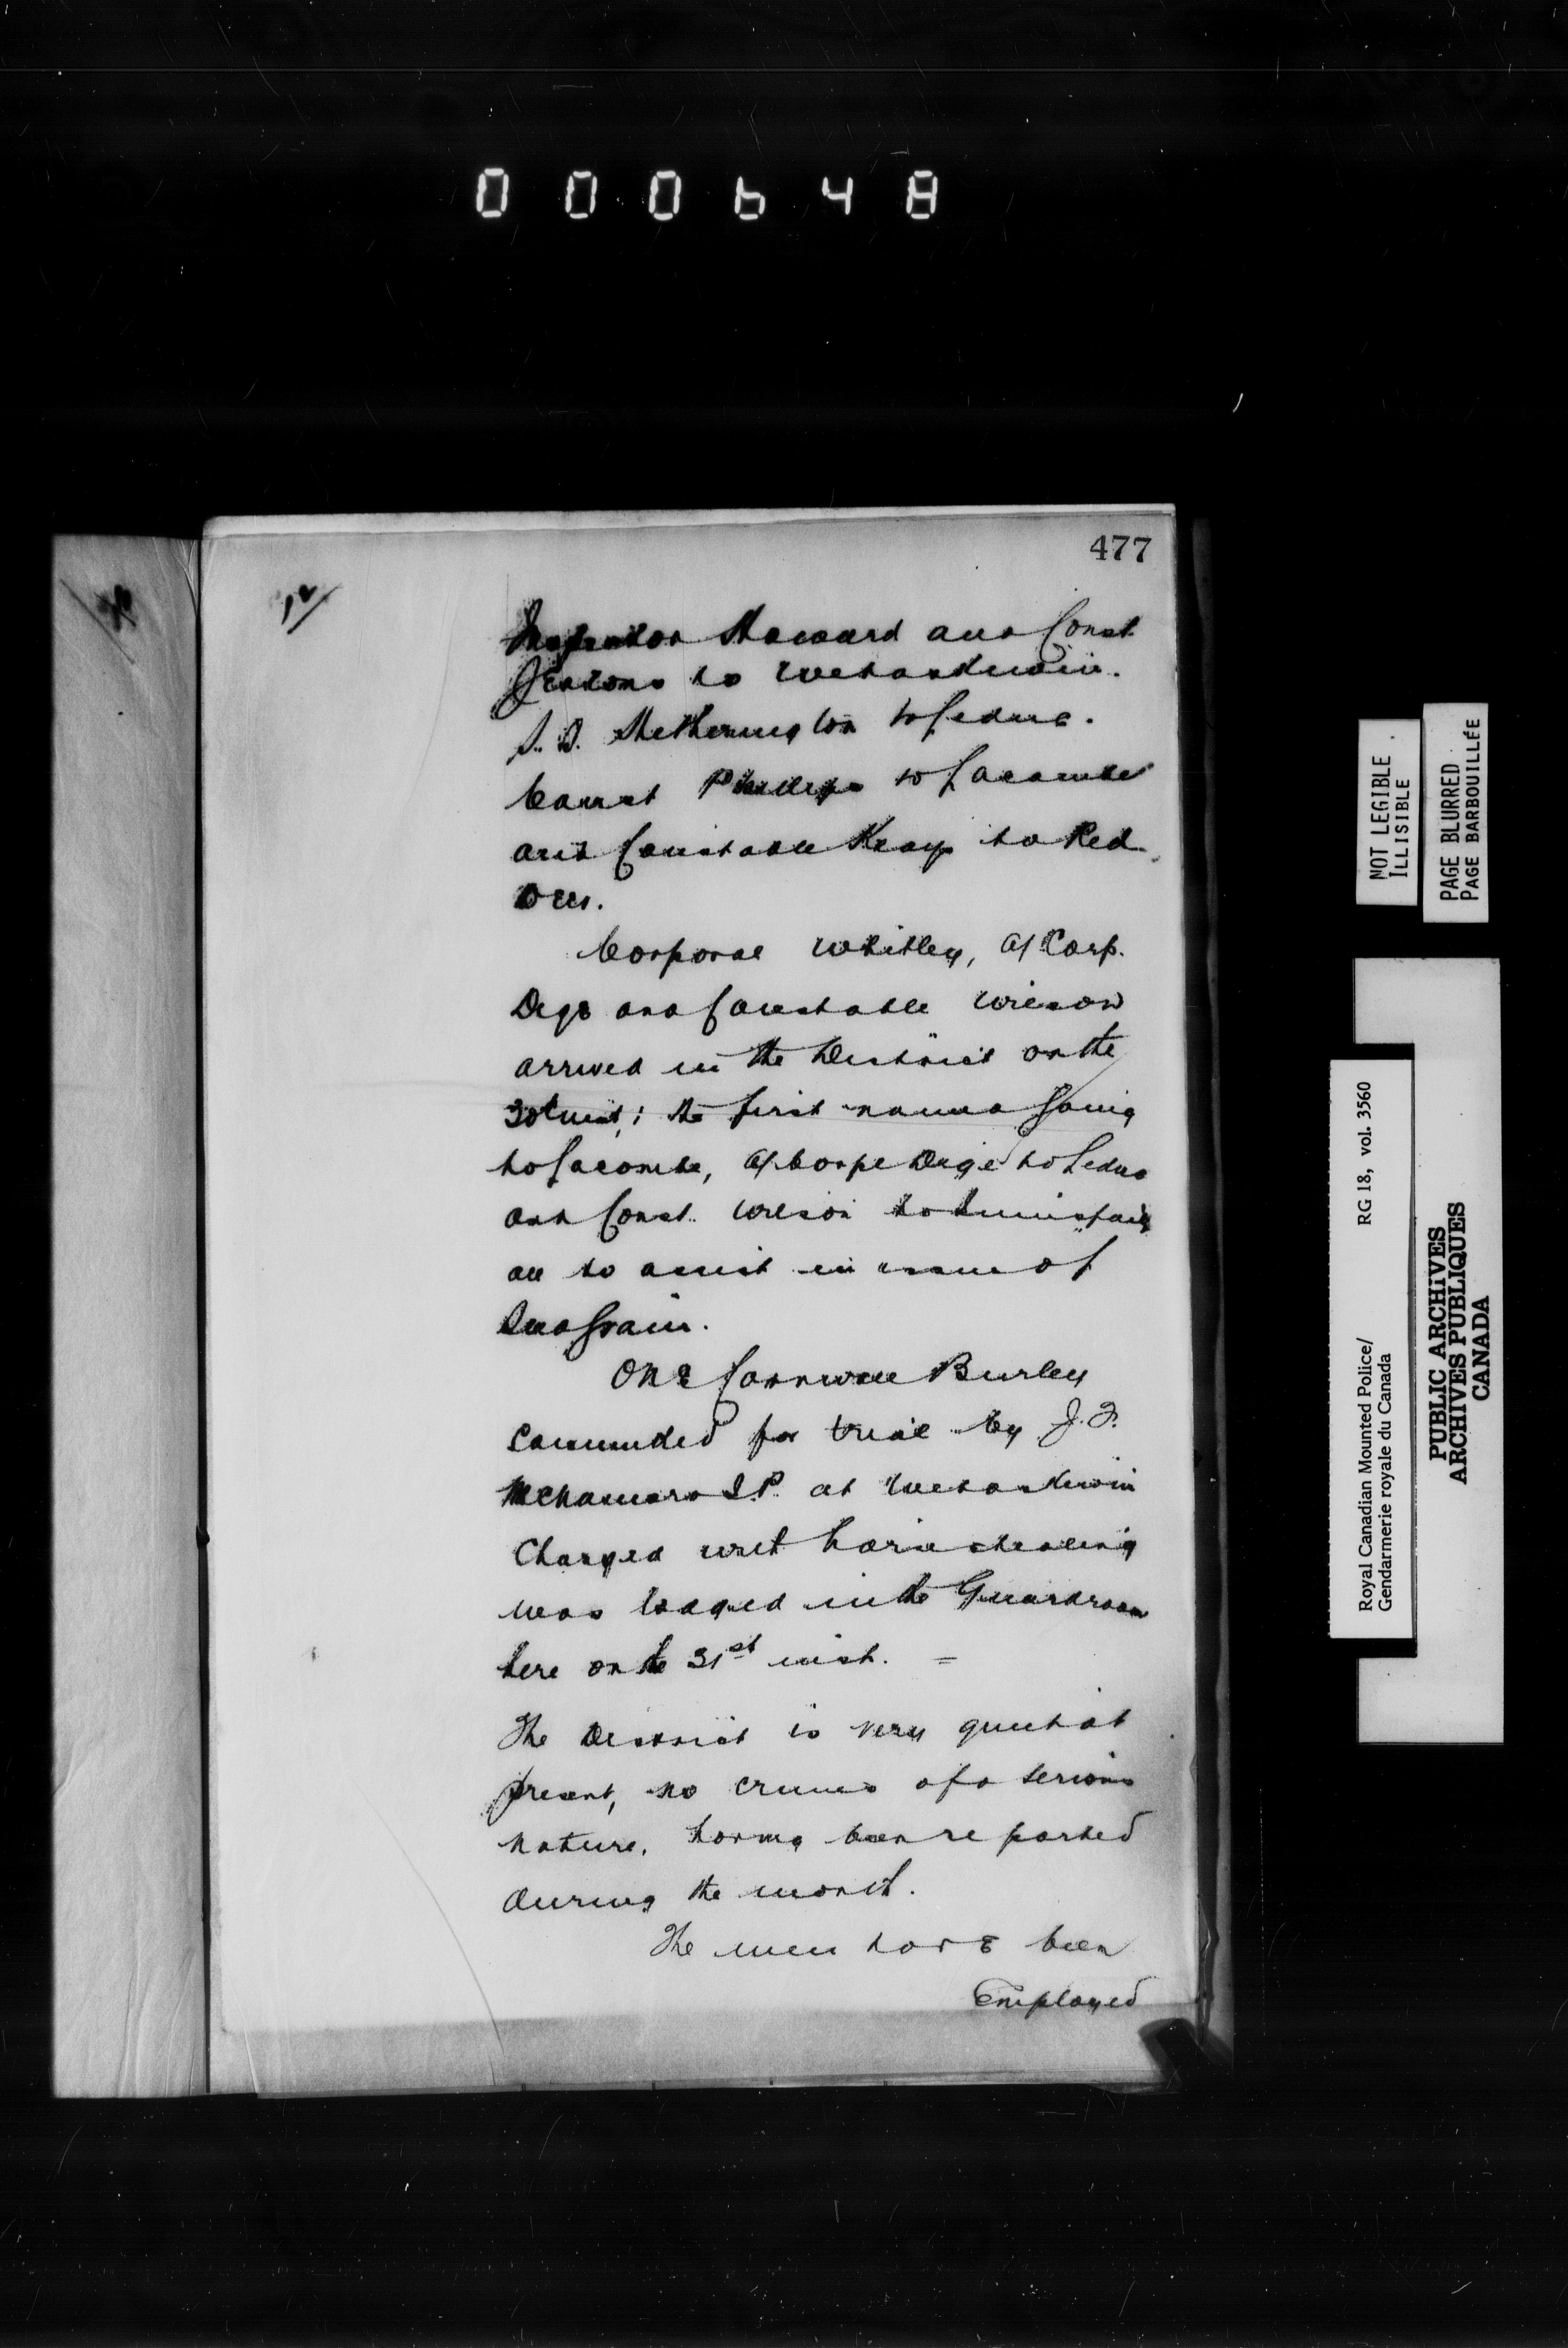 000648
477
12/
Inspector Howard and Const
to Wetaskiwin.
S. S. Hetherington to Leduc.
Const Phillips to Lacombe
and Constable Keay to Red
Deer.
Corporal Whitley, A/Corp.
and Constable Wilson
arrived in the District on the
30th inst; the first named going
to Lacombe, A/Corpl to Leduc
and Const. Wilson to Innisfail
all to assist in issue of
Seed Grain.
One Cornwall Burley
Committed for trial by J. F.
McNamara J.P. at Wetaskiwin
Charged with horse stealing
was lodged in the Guardroom
here on the 31st inst. =
The District is very quiet at
present, no crimes of a serious
nature, having been reported
during the month.
The men have been
Employed
NOT LEGIBLE
ILLISIBLE
PAGE BLURRED
PAGE BARBOUILLÉE
Royal Canadian Mounted Police/ RG 18, vol. 3560
Gendarmerie royale du Canada
PUBLIC ARCHIVES
ARCHIVES PUBLIQUES
CANADA